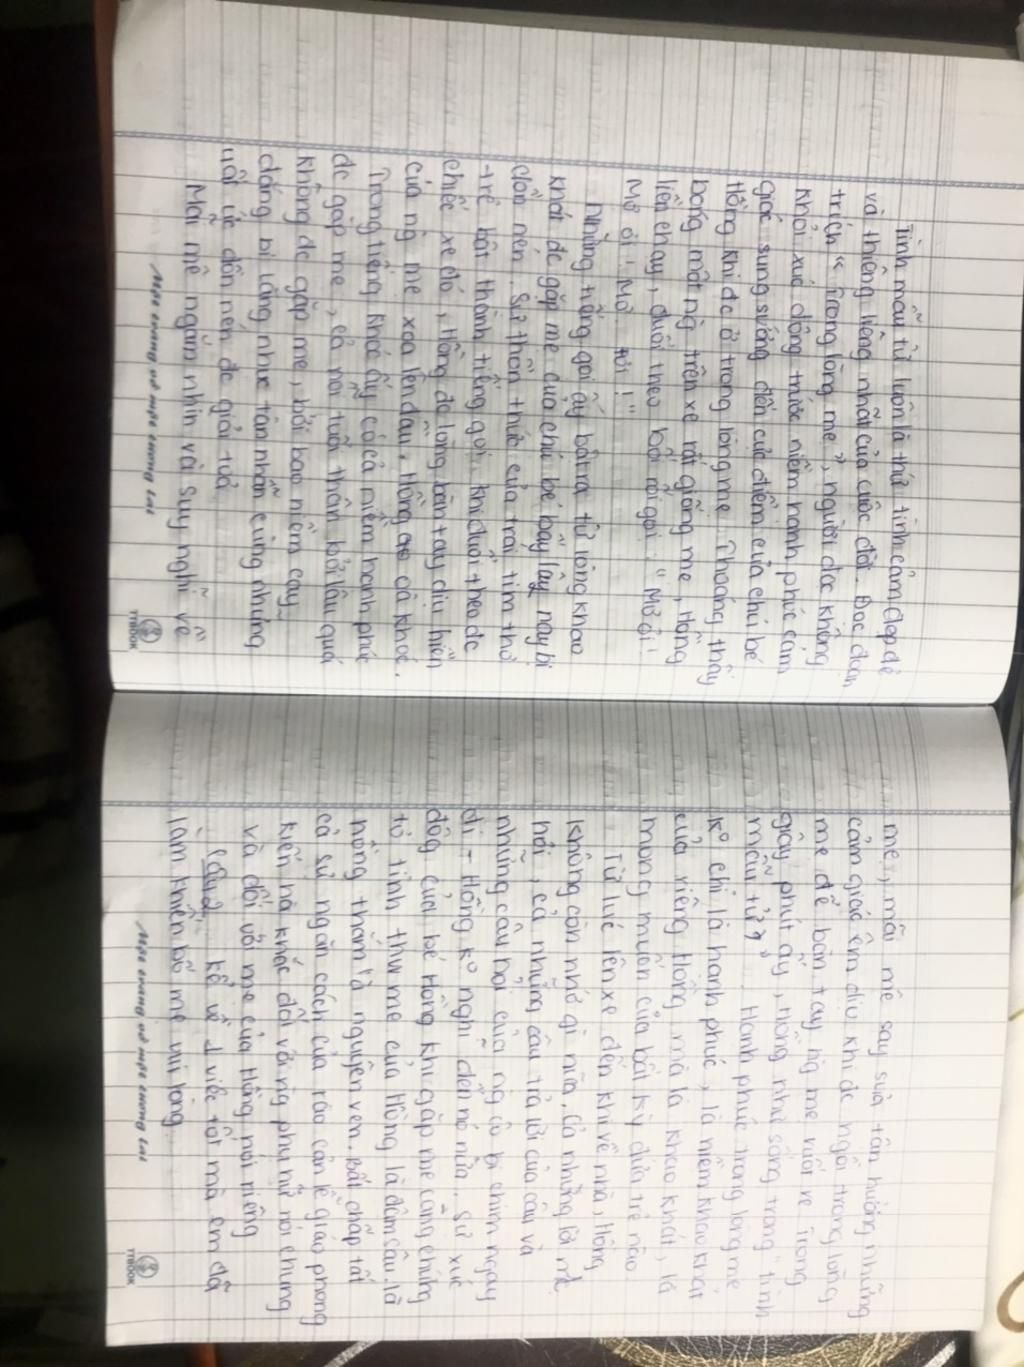 Tình mẫu tử luôn là thứ tình cảm đẹp đẽ
và thiêng liêng nhất của cuộc đời. Đọc đoạn
trích "Trong lòng mẹ", người đọc không
khỏi xúc động trước niềm hạnh phúc, cảm
giác sung sướng đến cực điểm của chú bé
Hồng khi đc ở trong lòng mẹ. Thoáng thấy
bóng một ng trên xe rất giống mẹ, Hồng
liền chạy, đuổi theo bối rối gọi: "Mợ ơi!
Mợ ơi! Mợ ơi!"
Những tiếng gọi ấy bật ra từ lòng khao
khát đc gặp mẹ của chú bé bấy lâu nay bị
dồn nén. Sự thổn thức của trái tim thơ
trẻ bật thành tiếng gọi. Khi đuổi theo đc
chiếc xe đó, Hồng đc lòng bàn tay dịu hiền
của ng mẹ xoa lên đầu, Hồng oà khóc.
Trong tiếng khóc ấy có cả niềm hạnh phúc
đc gặp mẹ, cả nỗi tủi thân bởi lâu quá
không đc gặp mẹ, bởi bao niềm cay
đắng bị lăng nhục tàn nhẫn cùng những
uất ức dồn nén đc giải toả
Mải mê ngắm nhìn và suy nghĩ về
Mực vuông vở mực tương lai
TTBOOK
mẹ, mải mê say sưa tận hưởng những
cảm giác êm dịu khi đc ngồi trong lòng
mẹ để bàn tay ng mẹ vuốt ve. Trong
giây phút ấy, Hồng như sống trong "tình
mẫu tử". Hạnh phúc trong lòng mẹ
ko chỉ là hạnh phúc, là niềm khao khát
của riêng Hồng mà là khao khát, là
mong muốn của bất kỳ đứa trẻ nào.
Từ lúc lên xe đến khi về nhà, Hồng
không còn nhớ gì nữa. Cả những lời mẹ
hỏi, cả những câu trả lời của cậu và
những câu hỏi của ng cô bị chìm ngay
đi - Hồng ko nghĩ đến nó nữa. Sự xúc
động của bé Hồng khi gặp mẹ càng chính
tỏ tình thw mẹ của Hồng là đậm sâu, là
nồng thắm, là nguyên vẹn. Bất chấp tất
cả sự ngăn cách của rào cản lễ giáo phong
kiến hà khắc đối với ng phụ nữ nói chung
và đối với mẹ của Hồng nói riêng
Câu 2. kể về 1 việc tốt mà em đã
làm khiến bố mẹ vui lòng
TTBOOK